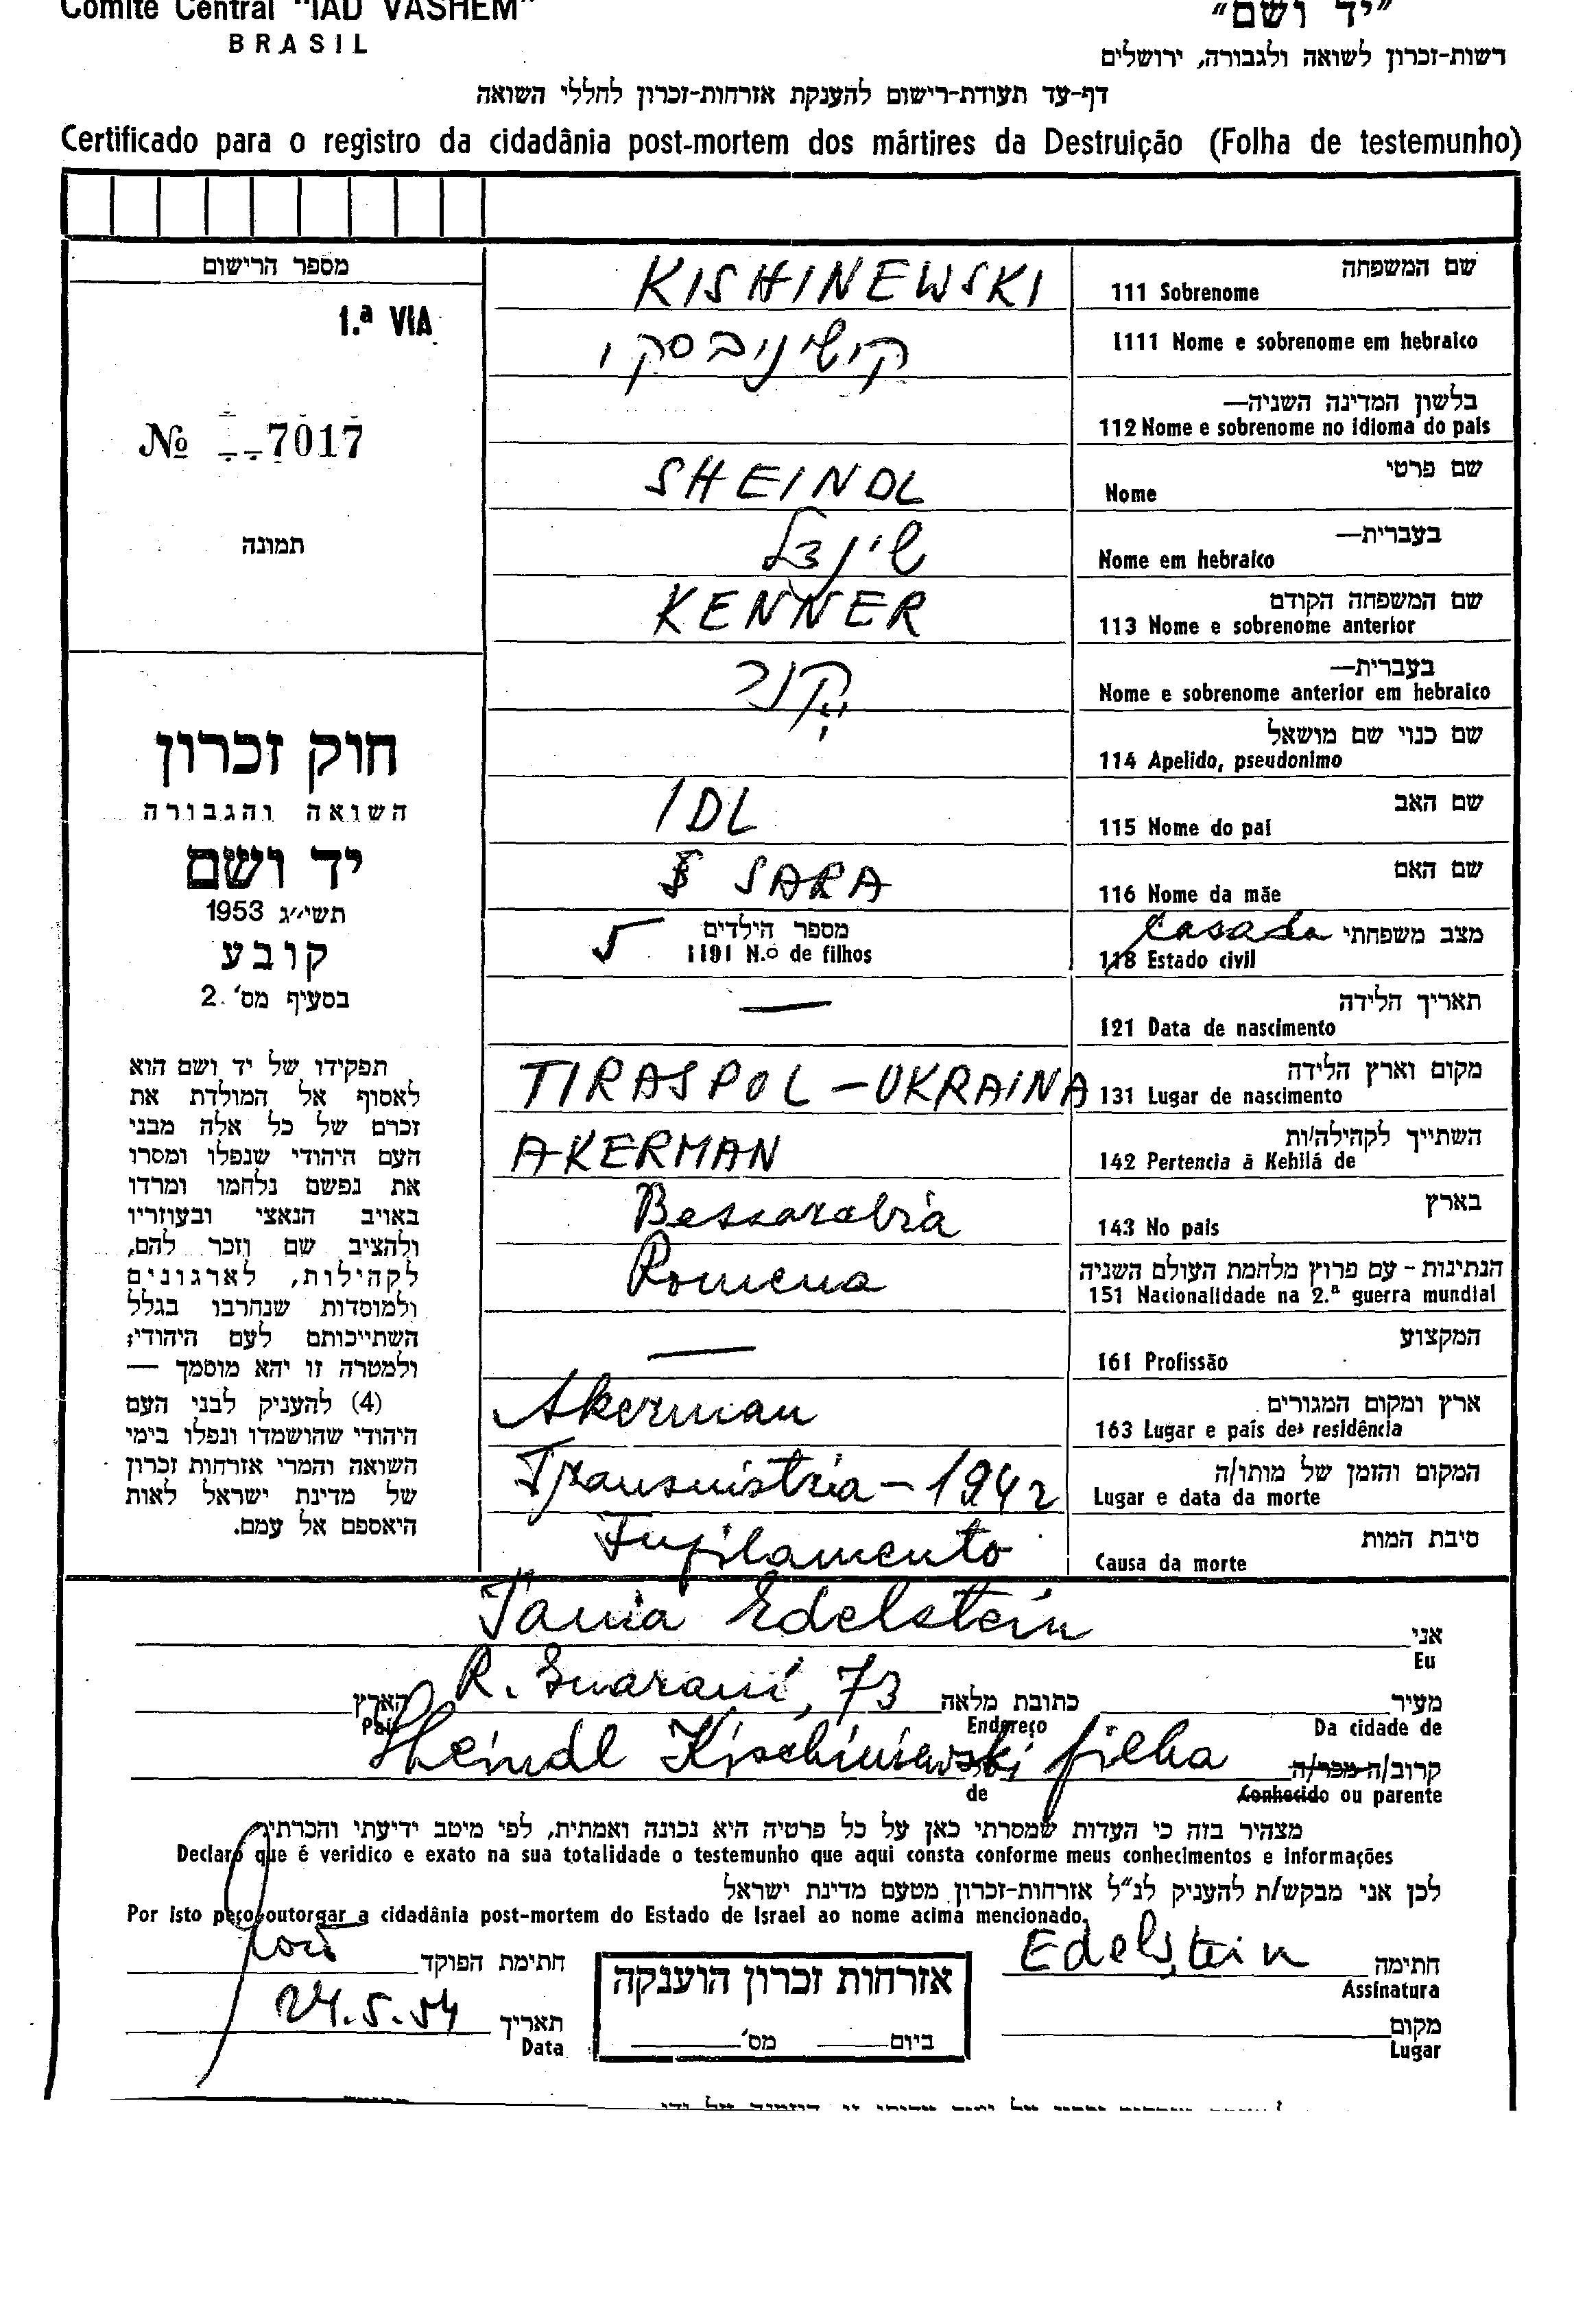 Comite Central "IAD VASHEM"
BRASIL
"יד ושם"
רשות-זכרון לשואה ולגבורה, ירושלים
דף-עד תעודת-רישום להענקת אזרחות-זכרון לחללי השואה
Certificado para o registro da cidadânia post-mortem dos mártires da Destruição (Folha de testemunho)
מספר הרישום
1.ª VIA
№ 7017
תמונה
חוק זכרון
השואה והגבורה
יד ושם
תשי״ג 1953
קובע
בסעיף מס' 2.
תפקידו של יד ושם הוא
לאסוף אל המולדת את
זכרם של כל אלה מבני
העם היהודי שנפלו ומסרו
את נפשם נלחמו ומרדו
באויב הנאצי ובעוזריו
ולהציב שם וזכר להם,
לקהילות, לארגונים
ולמוסדות שנחרבו בגלל
השתייכותם לעם היהודי;
ולמטרה זו יהא מוסמך —
(4) להעניק לבני העם
היהודי שהושמדו ונפלו בימי
השואה והמרי אזרחות זכרון
של מדינת ישראל לאות
היאספם אל עמם.
שם המשפחה
KISHINEWSKI 111 Sobrenome
קישיניבסקי 1111 Nome e sobrenome em hebraico
בלשון המדינה השניה—
112 Nome e sobrenome no idioma do pais
שם פרטי
SHEINDL Nome
בעברית—
שינדל Nome em hebraico
שם המשפחה הקודם
KENNER 113 Nome e sobrenome anterior
בעברית—
קנר Nome e sobrenome anterior em hebraico
שם כנוי שם מושאל
114 Apelido, pseudonimo
שם האב
IDL 115 Nome do pai
שם האם
SARA 116 Nome da mãe
מספר הילדים מצב משפחתי Casada
5 1191 N.o de filhos 118 Estado civil
תאריך הלידה
— 121 Data de nascimento
מקום וארץ הלידה
TIRASPOL - UKRAINA 131 Lugar de nascimento
השתייך לקהילה/ות
AKERMAN 142 Pertencia à Kehilá de
בארץ
Bessarabia 143 No pais
הנתינות - עם פרוץ מלחמת העולם השניה
Romena 151 Nacionalidade na 2.ª guerra mundial
המקצוע
— 161 Profissão
ארץ ומקום המגורים
Akerman 163 Lugar e país de residência
המקום והזמן של מותו/ה
Transnistria - 1942 Lugar e data da morte
סיבת המות
Fusilamento Causa da morte
Tania Edelstein אני
Eu
הארץ R. Guarani, 73 כתובת מלאה מעיר
País Endereço Da cidade de
Sheindl Kischiniewski filha קרוב/ה מכר/ה
de Conhecido ou parente
מצהיר בזה כי העדות שמסרתי כאן על כל פרטיה היא נכונה ואמתית, לפי מיטב ידיעתי והכרתי
Declaro que é veridico e exato na sua totalidade o testemunho que aqui consta conforme meus conhecimentos e informações
לכן אני מבקש/ת להעניק לנ״ל אזרחות-זכרון מטעם מדינת ישראל
Por isto peço outorgar a cidadânia post-mortem do Estado de Israel ao nome acima mencionado.
חתימת הפוקד
אזרחות זכרון הוענקה
Edelstein חתימה
Assinatura
24.5.54 תאריך
Data
ביום מס'
מקום
Lugar